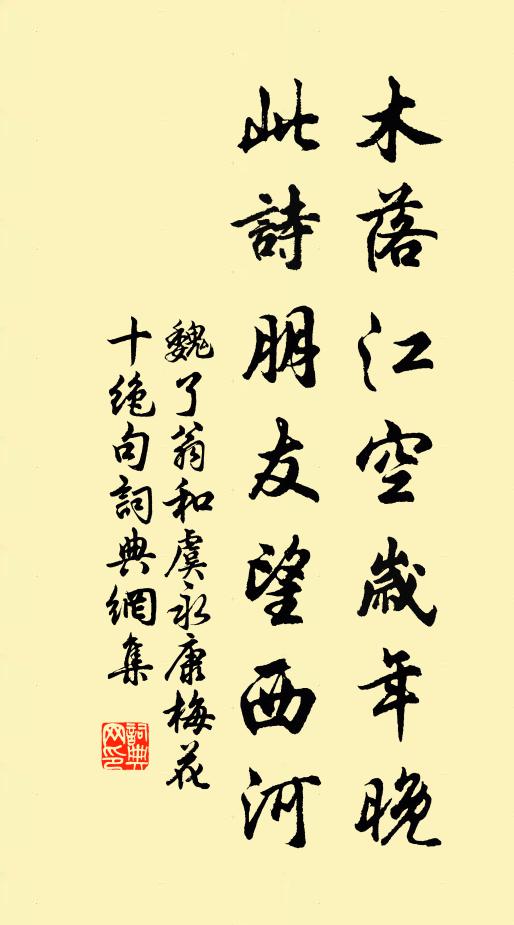 木落江空歲年晚
此詩朋友望西河
魏了翁和虞永康梅花
十絶句詞典網集
詞典
网印